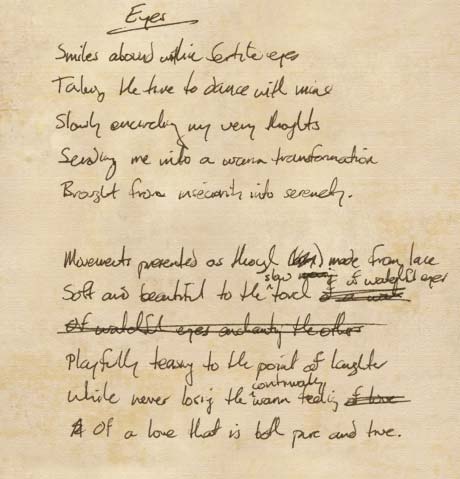 Eyes
Smiles abound within fertile eyes
Taking the time to dance with mine
Slowly encircling my very thoughts
Sending me into a warm transformation
Brought from insecurity into serenity.
Movements presented as though made from lace
Soft and beautiful to the slow touch of watchful eyes
Of watchful eyes enchanting the others
Playfully teasing to the point of laughter
While never losing the continually warm feeling of love
Of a love that is both pure and true.